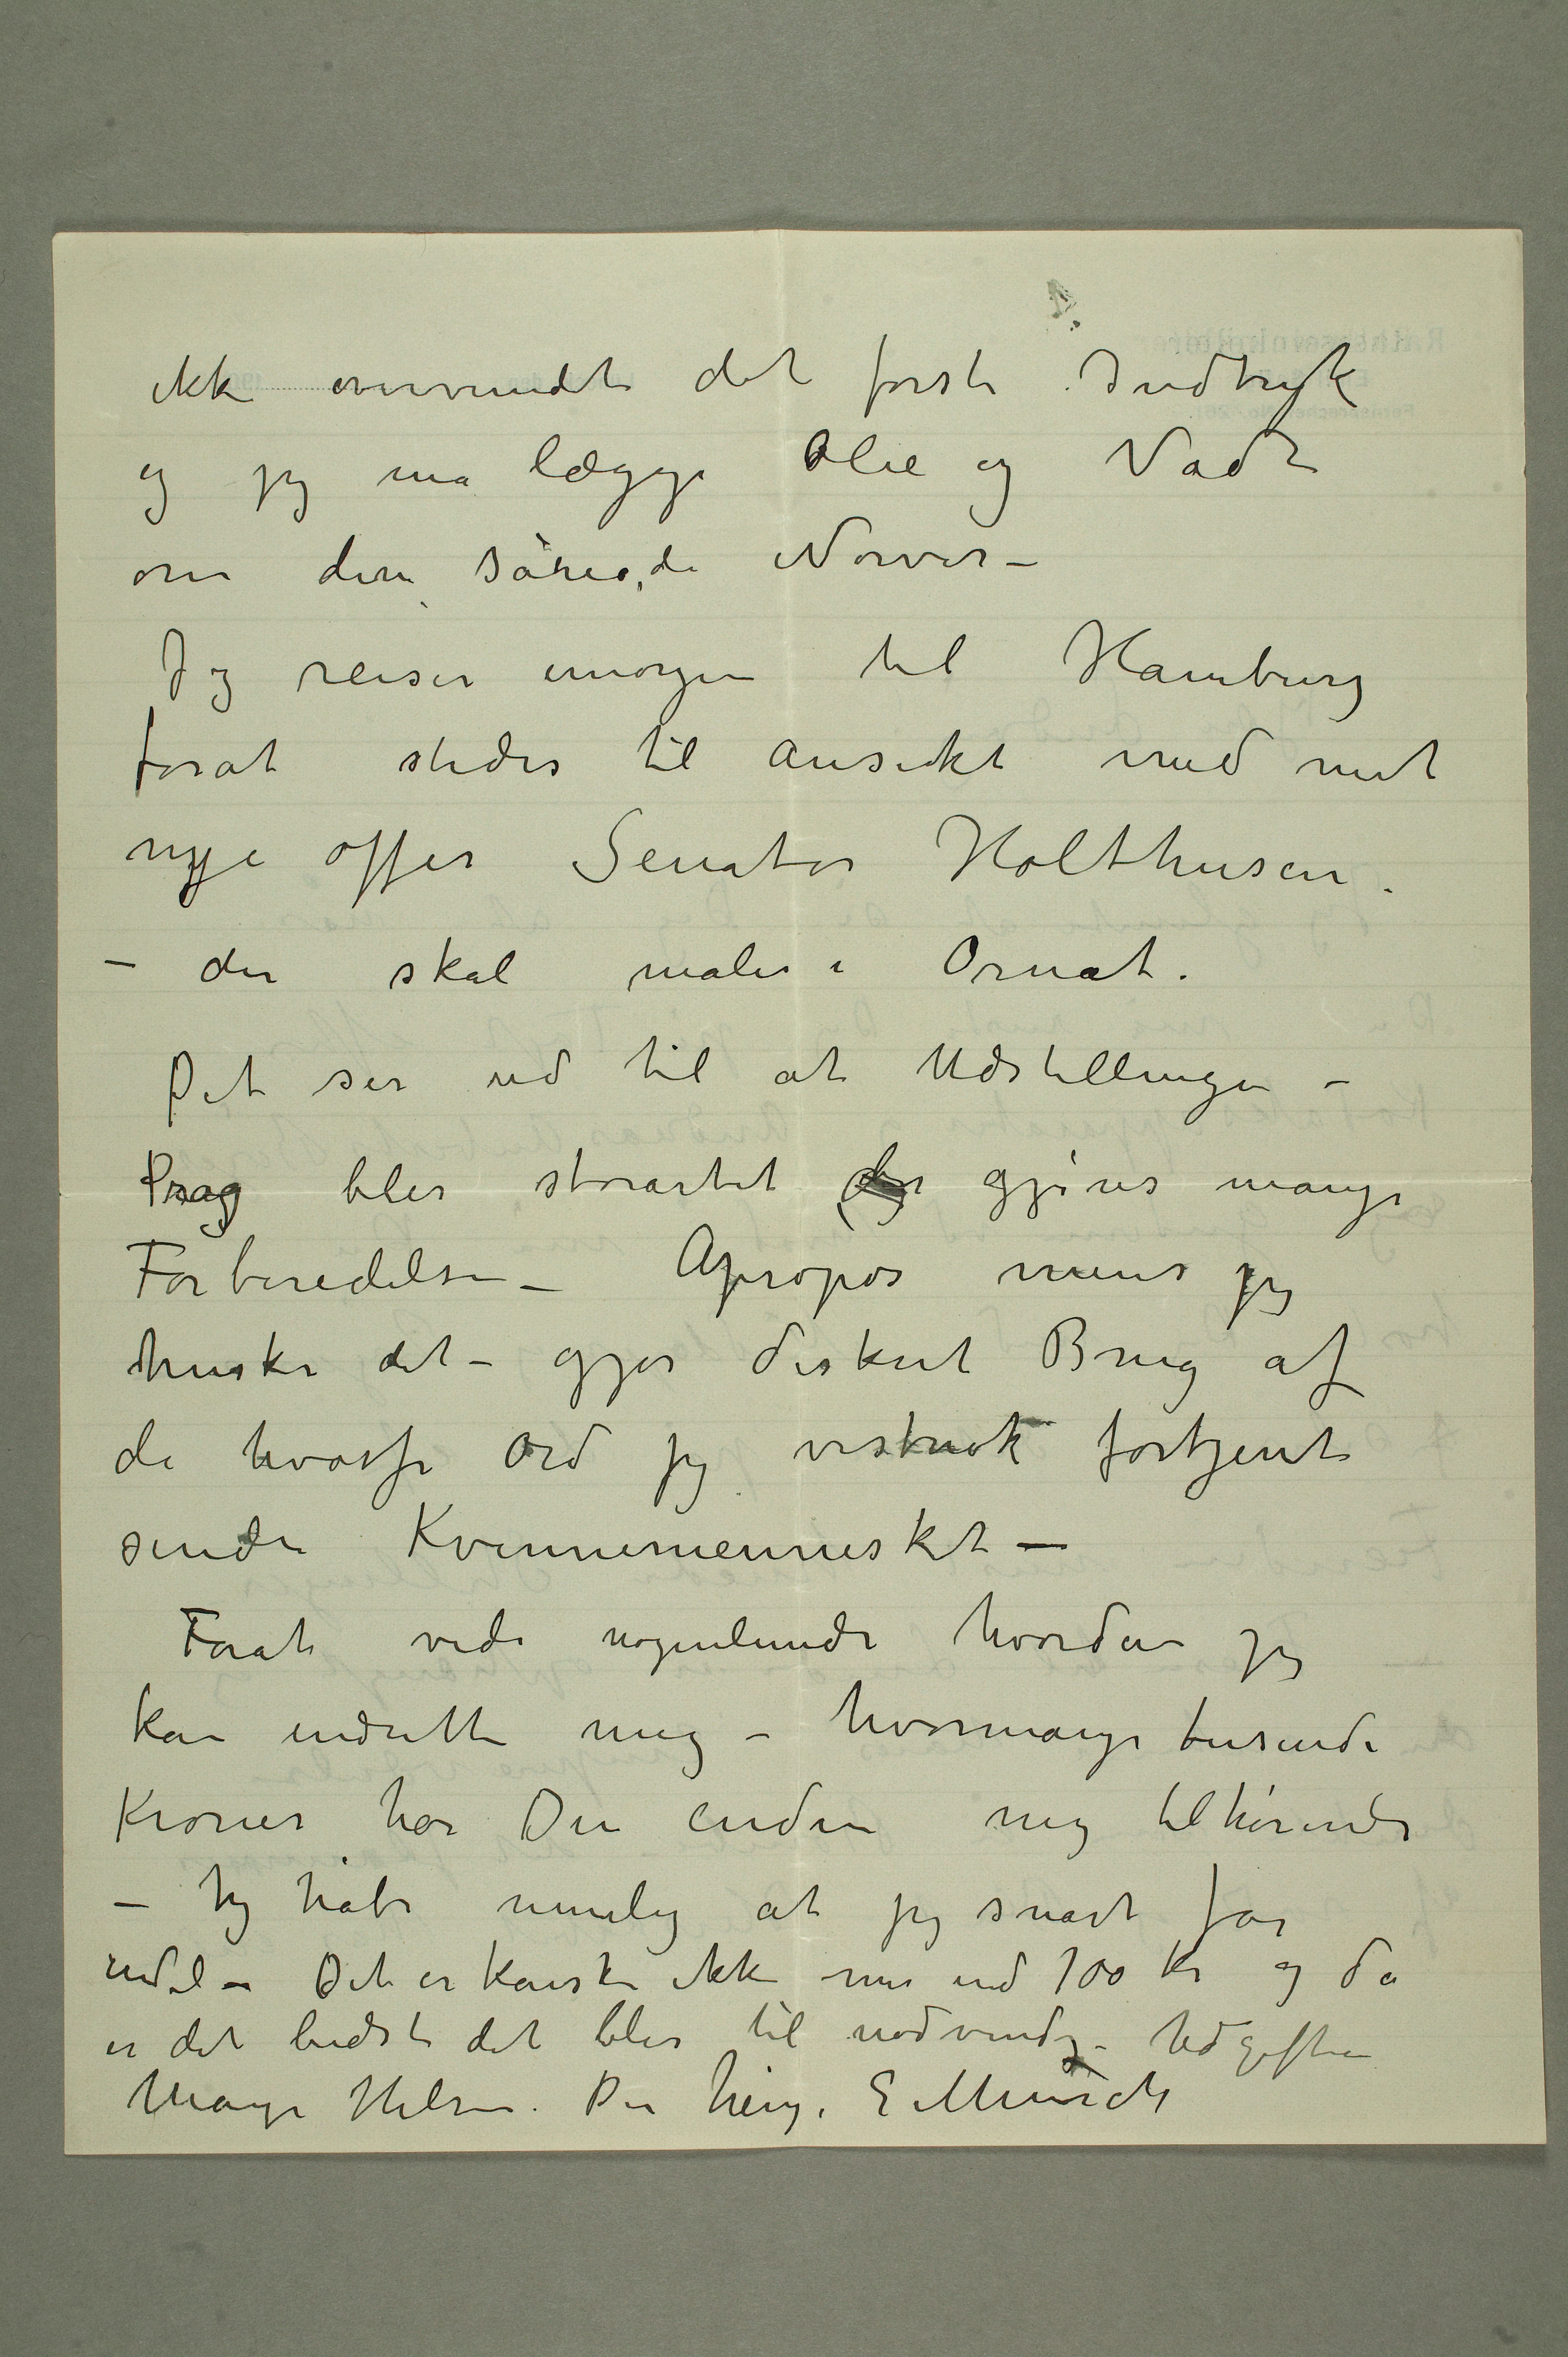 ikke overvundet det første Indtryk
og jeg må lægge Olie og Vadt
om den sårede Nerver –
Jeg reiser imorgen til Hamburg
forat stedes til ansikt med mit
nye offer Senator Holthusen.
– der skal males i Ornat.
Det ser ud til at Udstillingen –
Prag blir storartet der gjøres mange
Forberedelser – Apropos mens jeg
husker det – gjør diskret Brug af
de hvasse Ord jeg vistnok fortjent
sendte Kvinnemennesket —
Forat vide nogenlunde hvordan jeg
kan indrette mig – hvormange tusinde
Kroner har Du endnu mig tilhørende
– Jeg håber nemlig at jeg snart får
endel – Det er kanske ikke mer end 100 Kr og da
er det bedst det blir til nødvendige Udgifter
Mange Hilsner. Din heng. E Munch